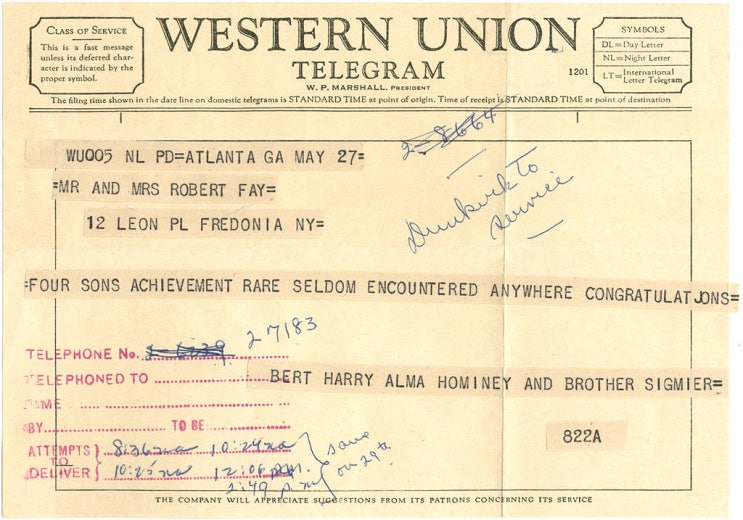 CLASS OF SERVICE
This is a fast message
unless its deferred char-
acter is indicated by the
proper symbol.
WESTERN UNION
TELEGRAM
W. P. MARSHALL, PRESIDENT
1201
SYMBOLS
DL=Day Letter
NL=Night Letter
LT=International Letter Telegram
The filing time shown in the date line on domestic telegrams is STANDARD TIME at point of origin. Time of receipt is STANDARD TIME at point of destination
2-8664
WU005 NL PD=ATLANTA GA MAY 27=
=MR AND MRS ROBERT FAY=
12 LEON PL FREDONIA NY=
Dunkirk to
service
=FOUR SONS ACHIEVEMENT RARE SELDOM ENCOUNTERED ANYWHERE CONGRATULATJONS=
27183
TELEPHONE No.
TELEPHONED TO
BERT HARRY ALMA HOMINEY AND BROTHER SIGMIER=
TIME
BY TO BE
822A
ATTEMPTS 8:36 na 10:24 na
TO
DELIVER 10:25 na 12:06 p.m.
2:49 p.m.
same
on 29th
THE COMPANY WILL APPRECIATE SUGGESTIONS FROM ITS PATRONS CONCERNING ITS SERVICE